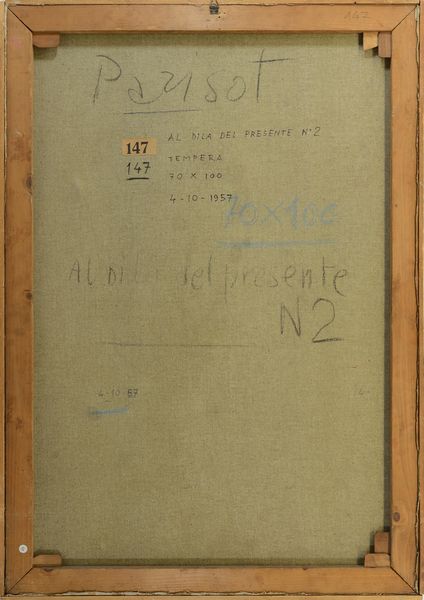 147
Parisot
147
147
AL DILA DEL PRESENTE N°2
TEMPERA
70 X 100
4-10-1957
70x100
Al Di là del presente
N2
4-10-57
4-